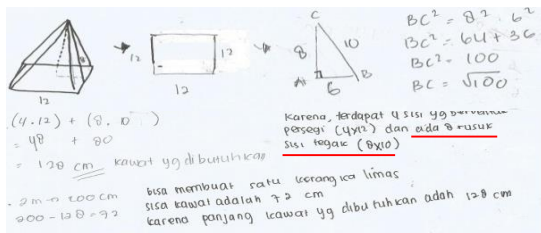 C
8
10
A
B
6
12
12
12
12
BC² = 8² . 6²
BC² = 64 + 36
BC² = 100
BC = √100
(4.12) + (8.10)
= 48 + 80
= 128 cm kawat yg dibutuhkan
Karena, terdapat 4 sisi yg
persegi (4x12) dan ada 8 rusuk
sisi tegak (8x10)
2m = 200 cm
200 - 128 = 72
bisa membuat satu kerangka limas
sisa kawat adalah 72 cm
karena panjang kawat yg dibutuhkan adah 128 cm